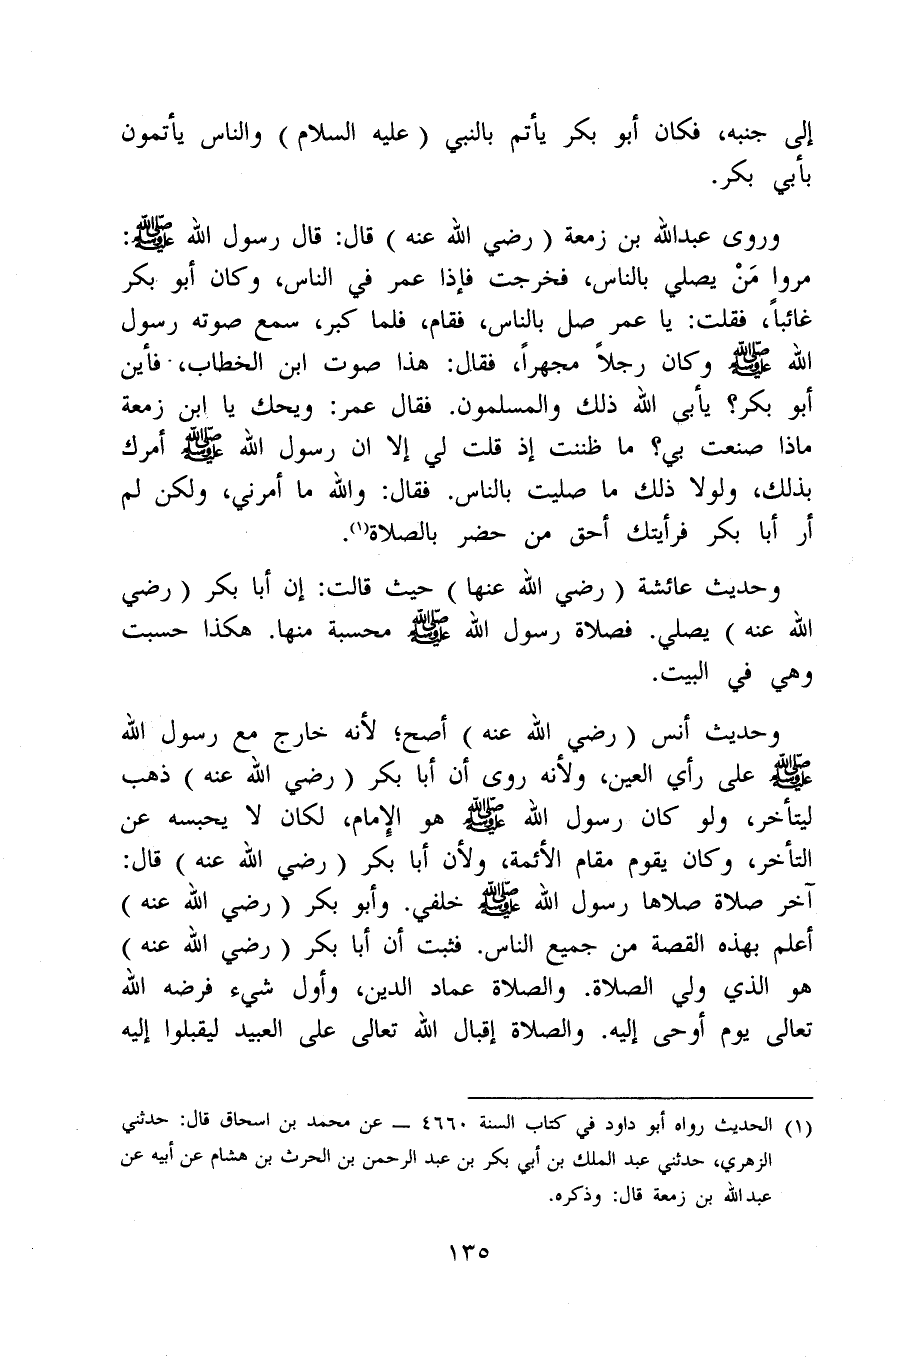 إلى جنبه، فكان أبو بكر يأتم بالنبي ( عليه السلام ) والناس يأتمون
بأبي بكر.
وروى عبدالله بن زمعة ( رضي الله عنه ) قال: قال رسول الله ﷺ:
مروا مَنْ يصلي بالناس، فخرجت فإذا عمر في الناس، وكان أبو بكر
غائباً، فقلت: يا عمر صل بالناس، فقام، فلما كبر، سمع صوته رسول
الله ﷺ وكان رجلاً مجهراً، فقال: هذا صوت ابن الخطاب، فأين
أبو بكر؟ يأبى الله ذلك والمسلمون. فقال عمر: ويحك يا ابن زمعة
ماذا صنعت بي؟ ما ظننت إذ قلت لي إلا ان رسول الله ﷺ أمرك
بذلك، ولولا ذلك ما صليت بالناس. فقال: والله ما أمرني، ولكن لم
أر أبا بكر فرأيتك أحق من حضر بالصلاة(١).
وحديث عائشة ( رضي الله عنها ) حيث قالت: إن أبا بكر ( رضي
الله عنه ) يصلي. فصلاة رسول الله ﷺ محسبة منها. هكذا حسبت
وهي في البيت.
وحديث أنس ( رضي الله عنه ) أصح؛ لأنه خارج مع رسول الله
ﷺ على رأي العين، ولأنه روى أن أبا بكر ( رضي الله عنه ) ذهب
ليتأخر، ولو كان رسول الله ﷺ هو الإمام، لكان لا يحبسه عن
التأخر، وكان يقوم مقام الأئمة، ولأن أبا بكر ( رضي الله عنه ) قال:
آخر صلاة صلاها رسول الله ﷺ خلفي. وأبو بكر ( رضي الله عنه )
أعلم بهذه القصة من جميع الناس. فثبت أن أبا بكر ( رضي الله عنه )
هو الذي ولي الصلاة. والصلاة عماد الدين، وأول شيء فرضه الله
تعالى يوم أوحى إليه. والصلاة إقبال الله تعالى على العبيد ليقبلوا إليه
(١) الحديث رواه أبو داود في كتاب السنة ٤٦٦٠ ــ عن محمد بن اسحاق قال: حدثني
الزهري، حدثني عبد الملك بن أبي بكر بن عبد الرحمن بن الحرث بن هشام عن أبيه عن
عبدالله بن زمعة قال: وذكره.
١٣٥